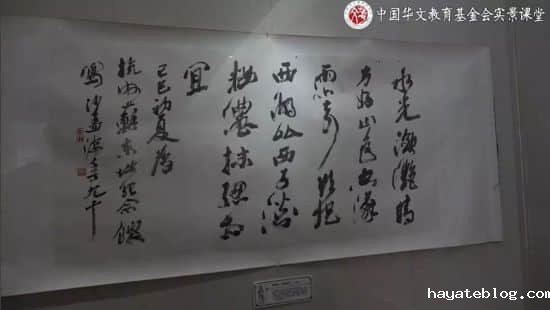 中国华文教育基金会实景课堂
水光潋灔晴
方好山色空濛
雨亦奇欲把
西湖比西子淡
粧濃抹總相
宜
己巳初夏為
杭州蘇東坡紀念館
寫沙孟海年九十
hayateblog.com